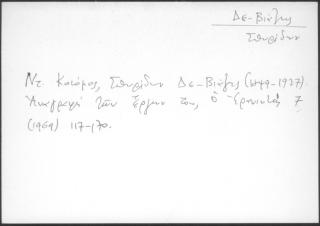 Δε-Βιάζης
Σπυρίδων
Ντ. Κονόμος, Σπυρίδων Δε-Βιάζης (1849-1927).
Ἀναγραφή τῶν ἔργων του, ὁ Ἐρανιστής 7
(1969) 117-170.